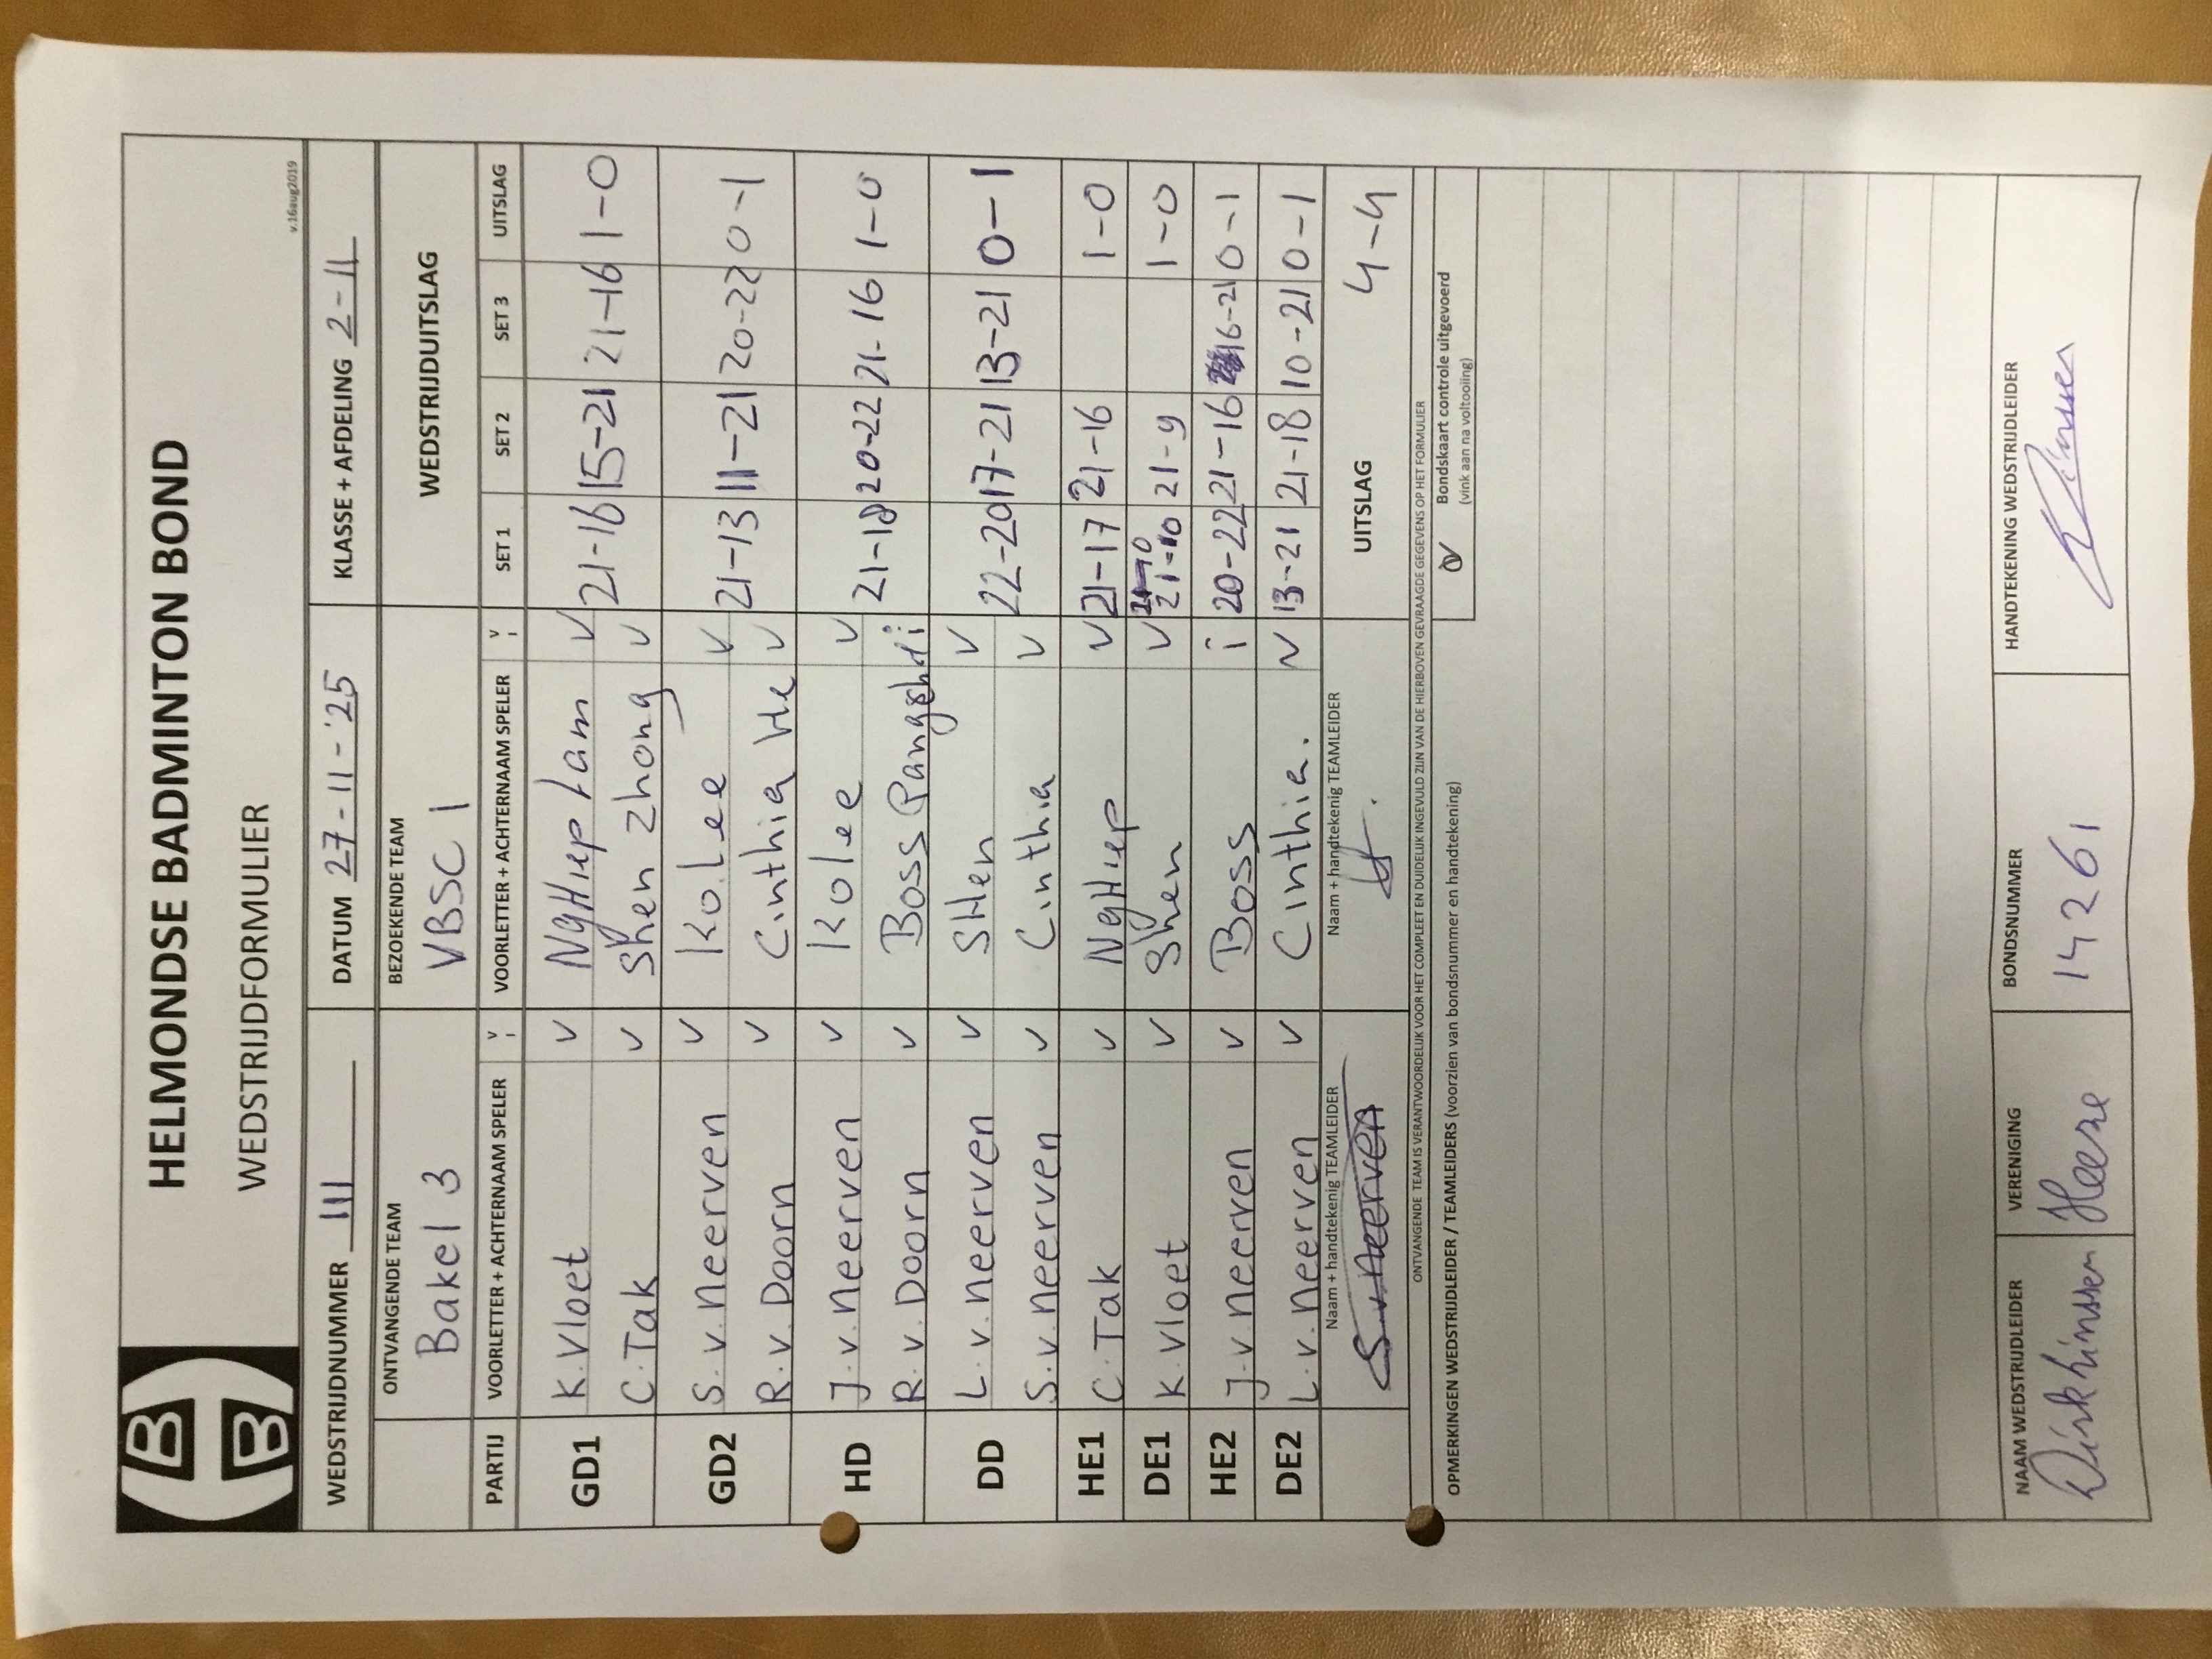 HELMONDSE BADMINTON BOND
WEDSTRIJDFORMULIER
v.16aug2019
WEDSTRIJDNUMMER 111 DATUM 27-11-'25 KLASSE + AFDELING 2-11
ONTVANGENDE TEAM BEZOEKENDE TEAM WEDSTRIJDUITSLAG
Bakel 3 VBSC 1
PARTIJ VOORLETTER + ACHTERNAAM SPELER V/I VOORLETTER + ACHTERNAAM SPELER V/I SET 1 SET 2 SET 3 UITSLAG
GD1 K. Vloet v NgHiep Lam v 21-16 15-21 21-16 1-0
C. Tak v Shen Zhong v
GD2 S. v. Neerven v Ko Lee v 21-13 11-21 20-22 0-1
R. v. Doorn v Cinthia He v
HD J. v. Neerven v Ko lee v 21-18 20-22 21-16 1-0
R. v. Doorn v Boss i
DD L. v. Neerven v SHen v 22-20 17-21 13-21 0-1
S. v. neerven v Cinthia v
HE1 C. Tak v NgHiep v 21-17 21-16 1-0
DE1 K. Vloet v Shen v 21-10 21-9 1-0
HE2 J. v. Neerven v Boss i 20-22 21-16 16-21 0-1
DE2 L. v. Neerven v Cinthia. v 13-21 21-18 10-21 0-1
Naam + handtekenig TEAMLEIDER Naam + handtekenig TEAMLEIDER UITSLAG 4-4
S. v. Neerven
ONTVANGENDE TEAM IS VERANTWOORDELIJK VOOR HET COMPLEET EN DUIDELIJK INGEVULD ZIJN VAN DE HIERBOVEN GEVRAAGDE GEGEVENS OP HET FORMULIER
OPMERKINGEN WEDSTRIJDLEIDER / TEAMLEIDERS (voorzien van bondsnummer en handtekening)
Bondskaart controle uitgevoerd
(vink aan na voltooiing)
NAAM WEDSTRIJDLEIDER VERENIGING BONDSNUMMER HANDTEKENING WEDSTRIJDLEIDER
Dirk Heeze 14261